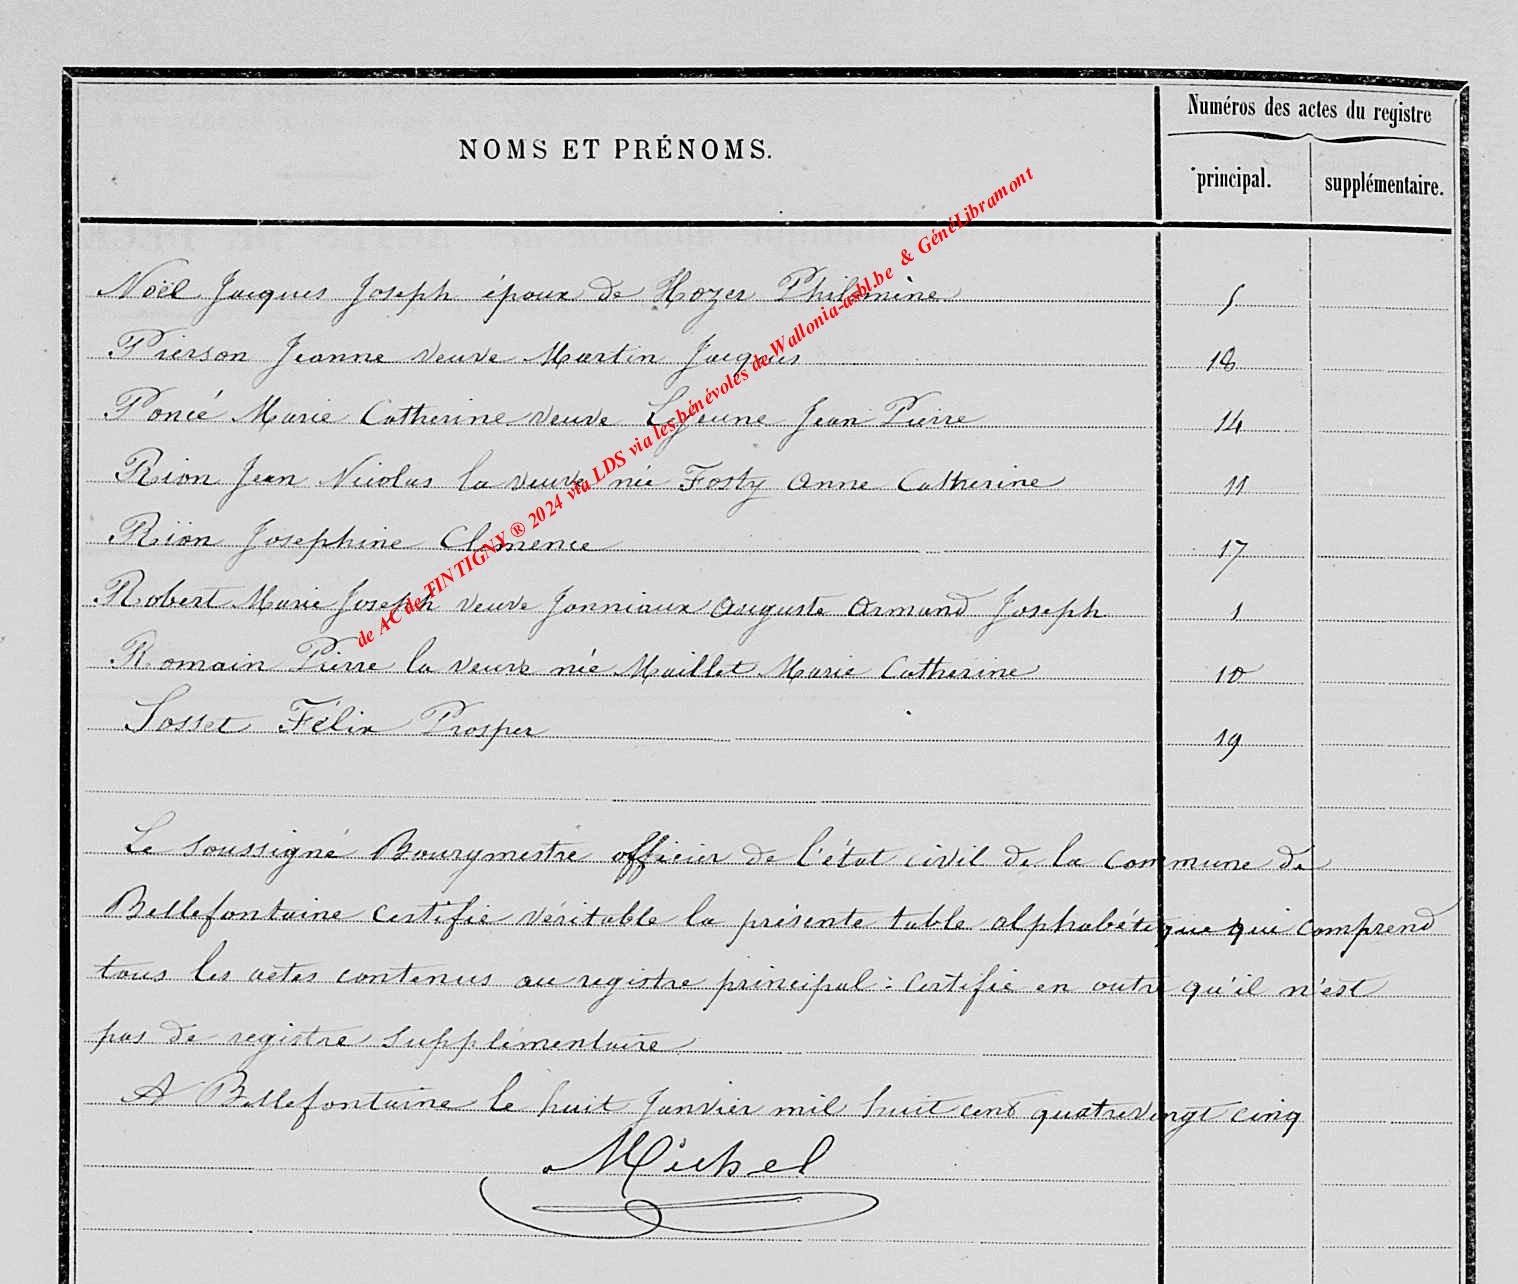 Numéros des actes du registre
NOMS ET PRÉNOMS.
principal. supplémentaire.
Noël Jacques Joseph époux de Hozer Philomène 5
Pierson Jeanne veuve Martin Jacques 18
Poncé Marie Catherine veuve Lejeune Jean Pierre 14
Rion Jean Nicolas la veuve née Fosty Anne Catherine 11
Rion Josephine Clmence 17
Robert Marie Joseph veuve Jonniaux Auguste Armand Joseph 1
Romain Pierre la veuve née Maillet Marie Catherine 10
Sosset Félix Prosper 19
Le soussigné Bourgmestre officier de l'état civil de la commune de
Bellefontaine certifie véritable la présente table alphabétique qui comprend
tous les actes contenus au registre principal : certifie en outre qu'il n'est
pas de registre supplémentaire
A Bellefontaine le huit Janvier mil huit cent quatrevingt cinq
Michel
de AC de TINTIGNY ® 2024 via LDS via les bénévoles de Wallonia-asbl.be & GénéLibramont